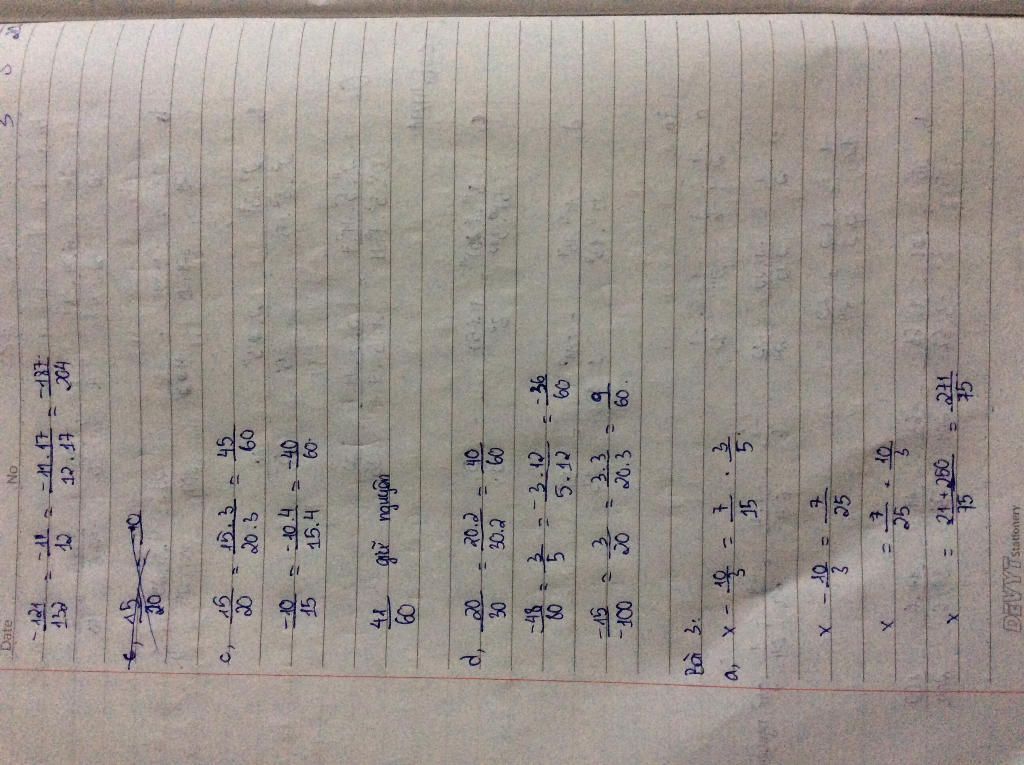 Date No
-121/132 = -11/12 = -11.17/12.17 = -187/204
c, 15/20
c, 15/20 = 15.3/20.3 = 45/60
-10/15 = -10.4/15.4 = -40/60
41/60 giữ nguyên
d, 20/30 = 20.2/30.2 = 40/60
-48/80 = -3/5 = -3.12/5.12 = -36/60
-15/-100 = 3/20 = 3.3/20.3 = 9/60
Bài 3:
a, x - 10/3 = 7/15 . 3/5
x - 10/3 = 7/25
x = 7/25 + 10/3
x = 21+250/75 = 271/75
Stationery